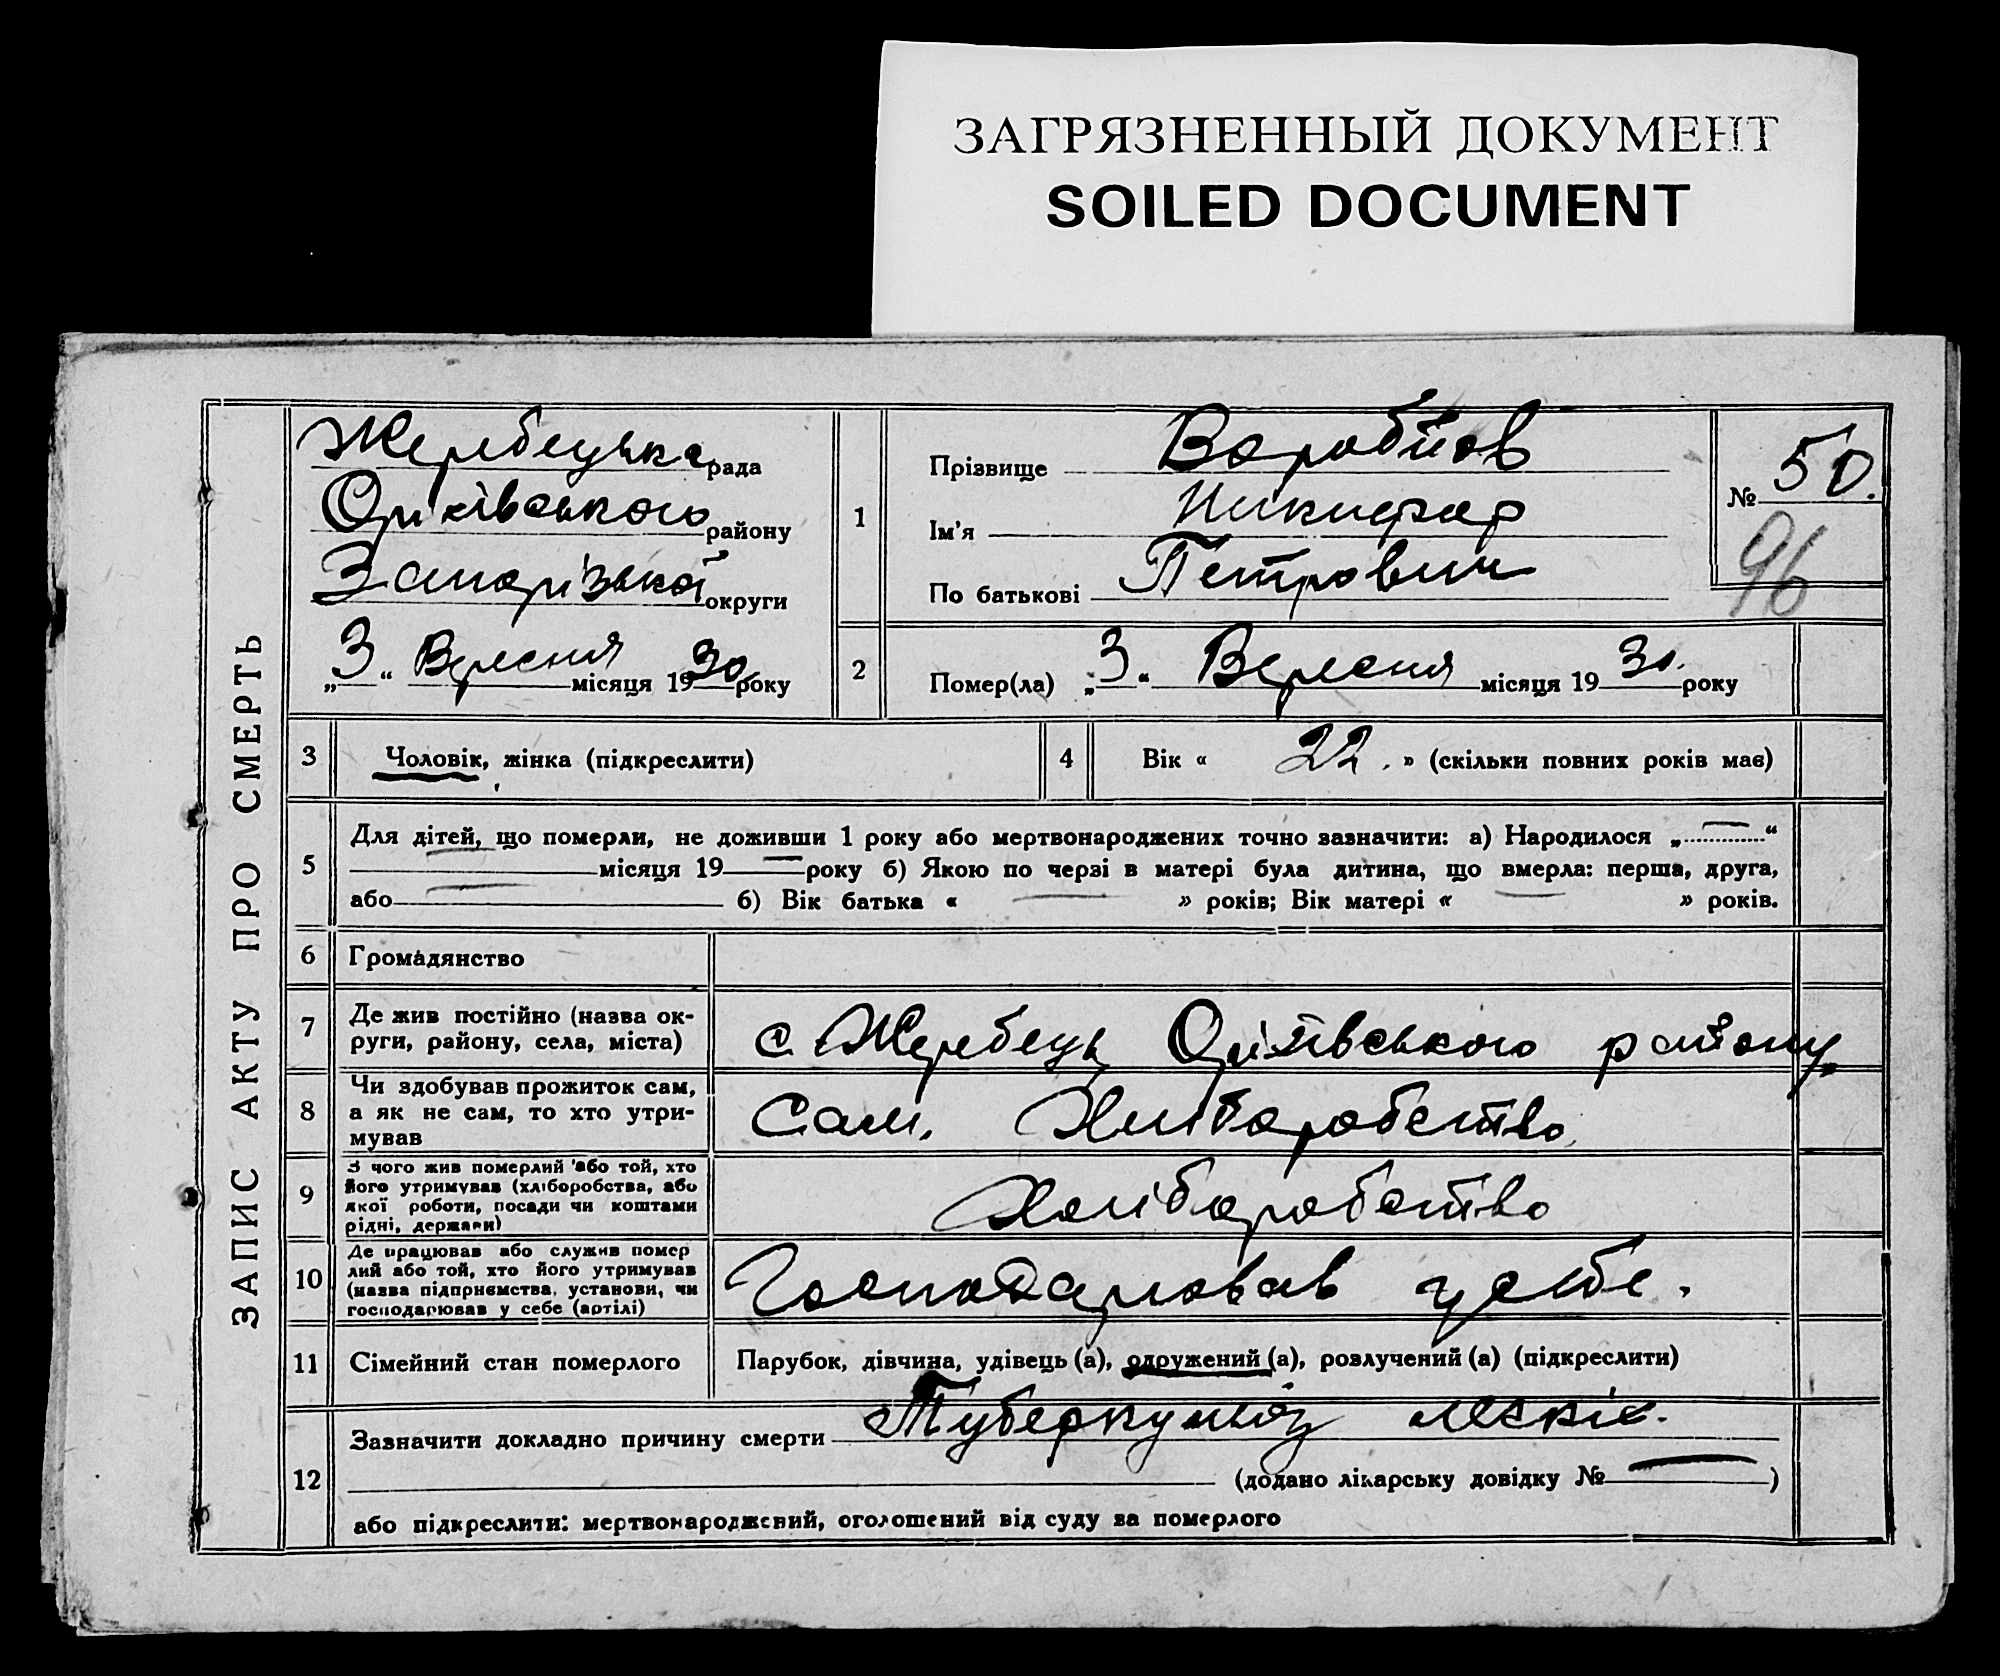 ЗАГРЯЗНЕННЫЙ ДОКУМЕНТ
SOILED DOCUMENT
ЗАПИС АКТУ ПРО СМЕРТЬ
Жеребецька рада
Оріхівського району
Запорізької округи
„3“ Вересня місяця 1930 року
1
Прізвище Воробйов
Ім'я Никифор
По батькові Петрович
№ 50.
96
2
Помер(ла) „3“ Вересня місяця 1930. року
3 Чоловік, жінка (підкреслити)
4 Вік « 22. » (скільки повних років має)
5 Для дітей, що померли, не доживши 1 року або мертвонароджених точно зазначити: а) Народилося „—“
місяця 19— року б) Якою по черзі в матері була дитина, що вмерла: перша, друга,
або — б) Вік батька « — » років; Вік матері « — » років.
6 Громадянство
7 Де жив постійно (назва ок-
руги, району, села, міста)
с. Жеребець Оріхівського району
8 Чи здобував прожиток сам,
а як не сам, то хто утри-
мував
Сам. Хліборобство
9 З чого жив померлий або той, хто
його утримував (хліборобства, або
якої роботи, посади чи коштами
рідні, держави)
Хліборобство
10 Де працював або служив помер
лий або той, хто його утримував
(назва підприємства, установи, чи
господарював у себе (артілі)
Господарював у себе.
11 Сімейний стан померлого
Парубок, дівчина, удівець (а), одружений (а), розлучений (а) (підкреслити)
12 Зазначити докладно причину смерти Туберкульоз
(додано лікарську довідку № — )
або підкреслити: мертвонароджений, оголошений від суду за померлого